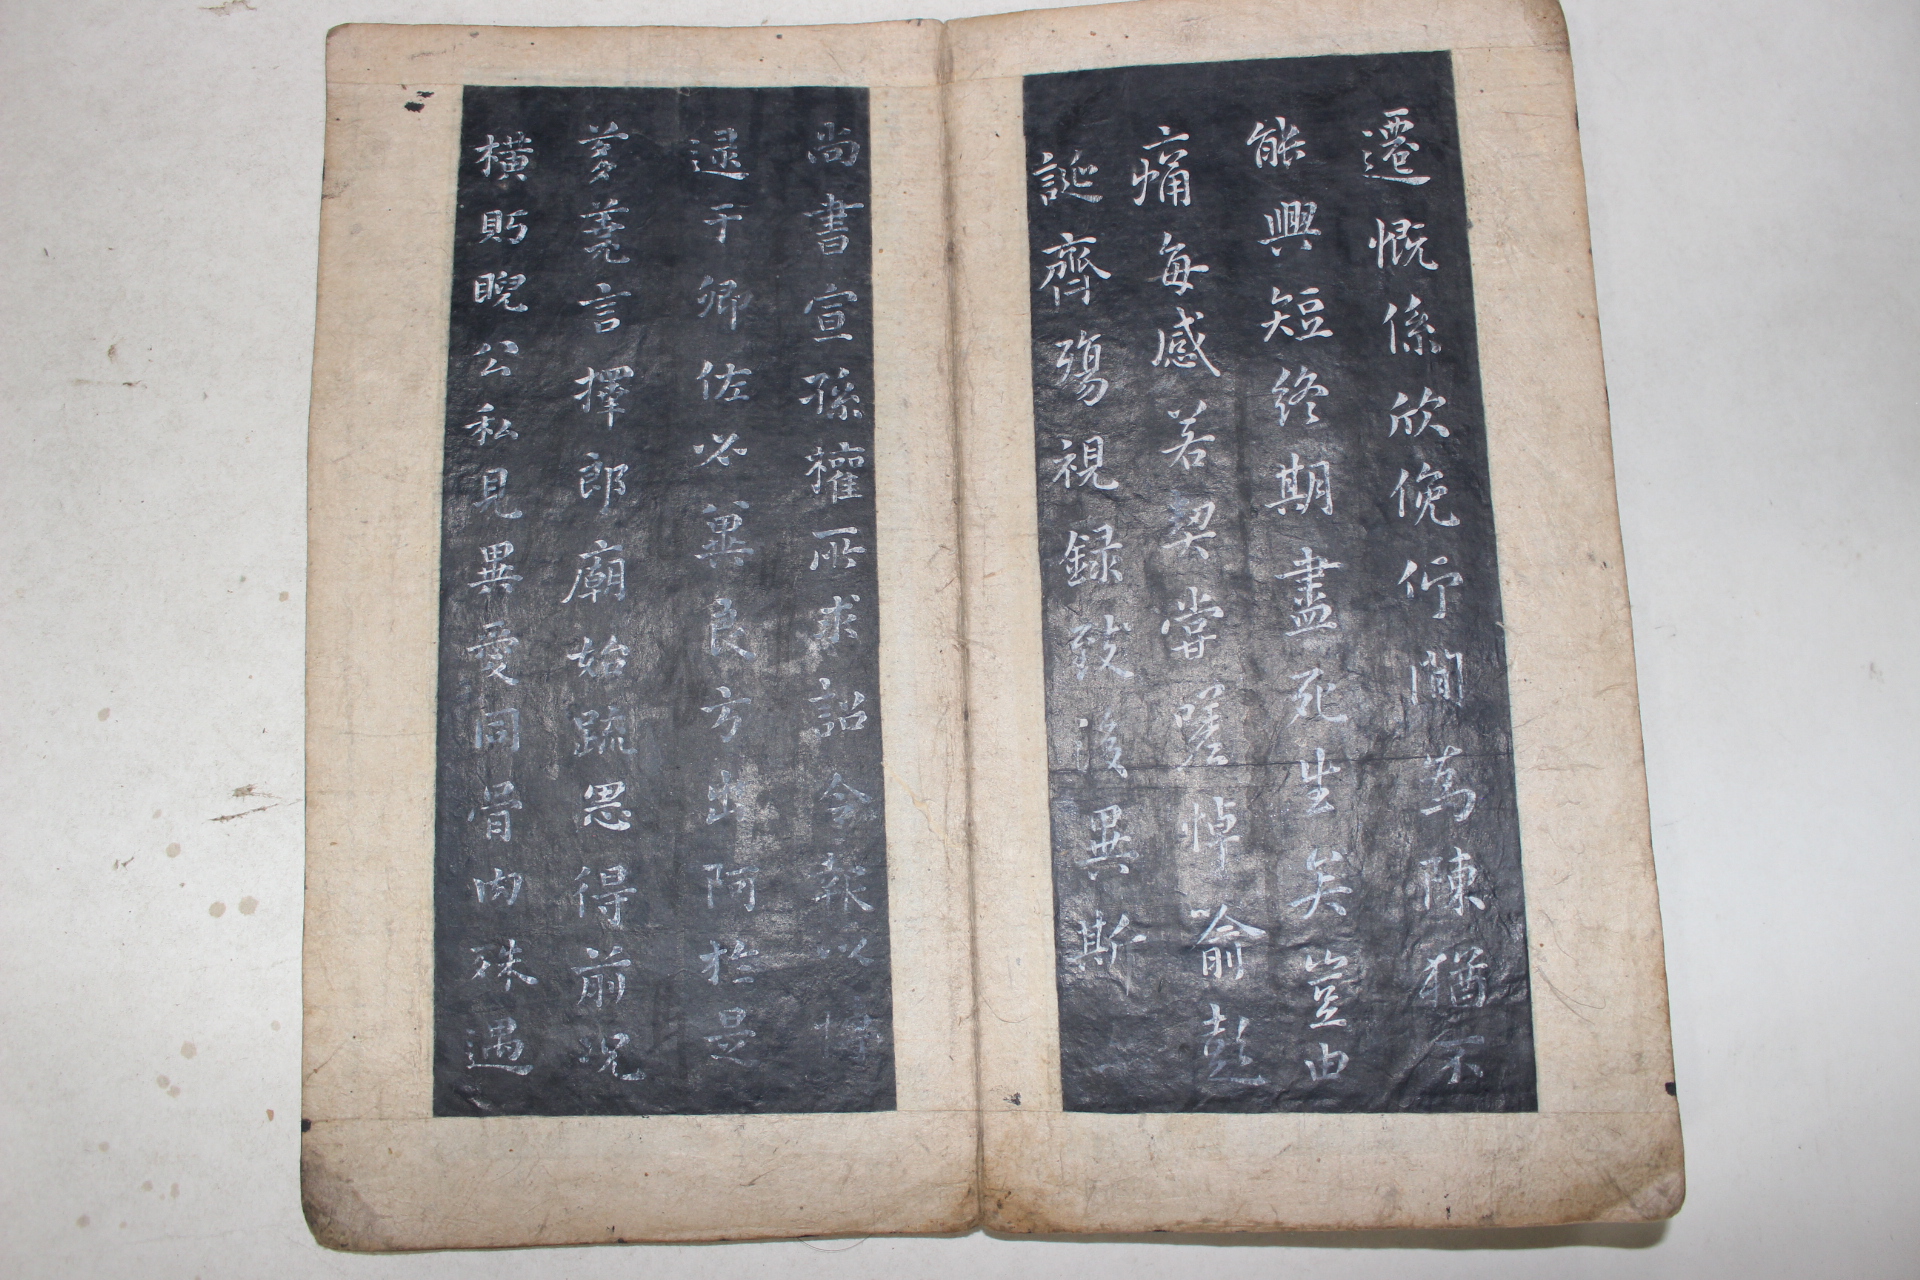 遷慨係欣俛仰間為陳猶不
能興短終期盡死生矣豈由
痛每感若契當嗟悼喻彭
誕齊殤視録致後異斯
尚書宣孫權所求詔令報以博
逮于卿佐必冀良方出阿於是
芻蕘言擇郎廟始疏思得前況
橫眄睨公私見異愛同骨肉殊遇